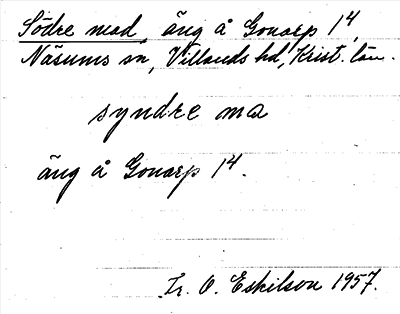 Södre mad, äng å Gonarp 14,
Näsums sn, Villands hd, Krist. län.
syndre ma
äng å Gonarp 14.
Fr. O. Eskilson 1957.